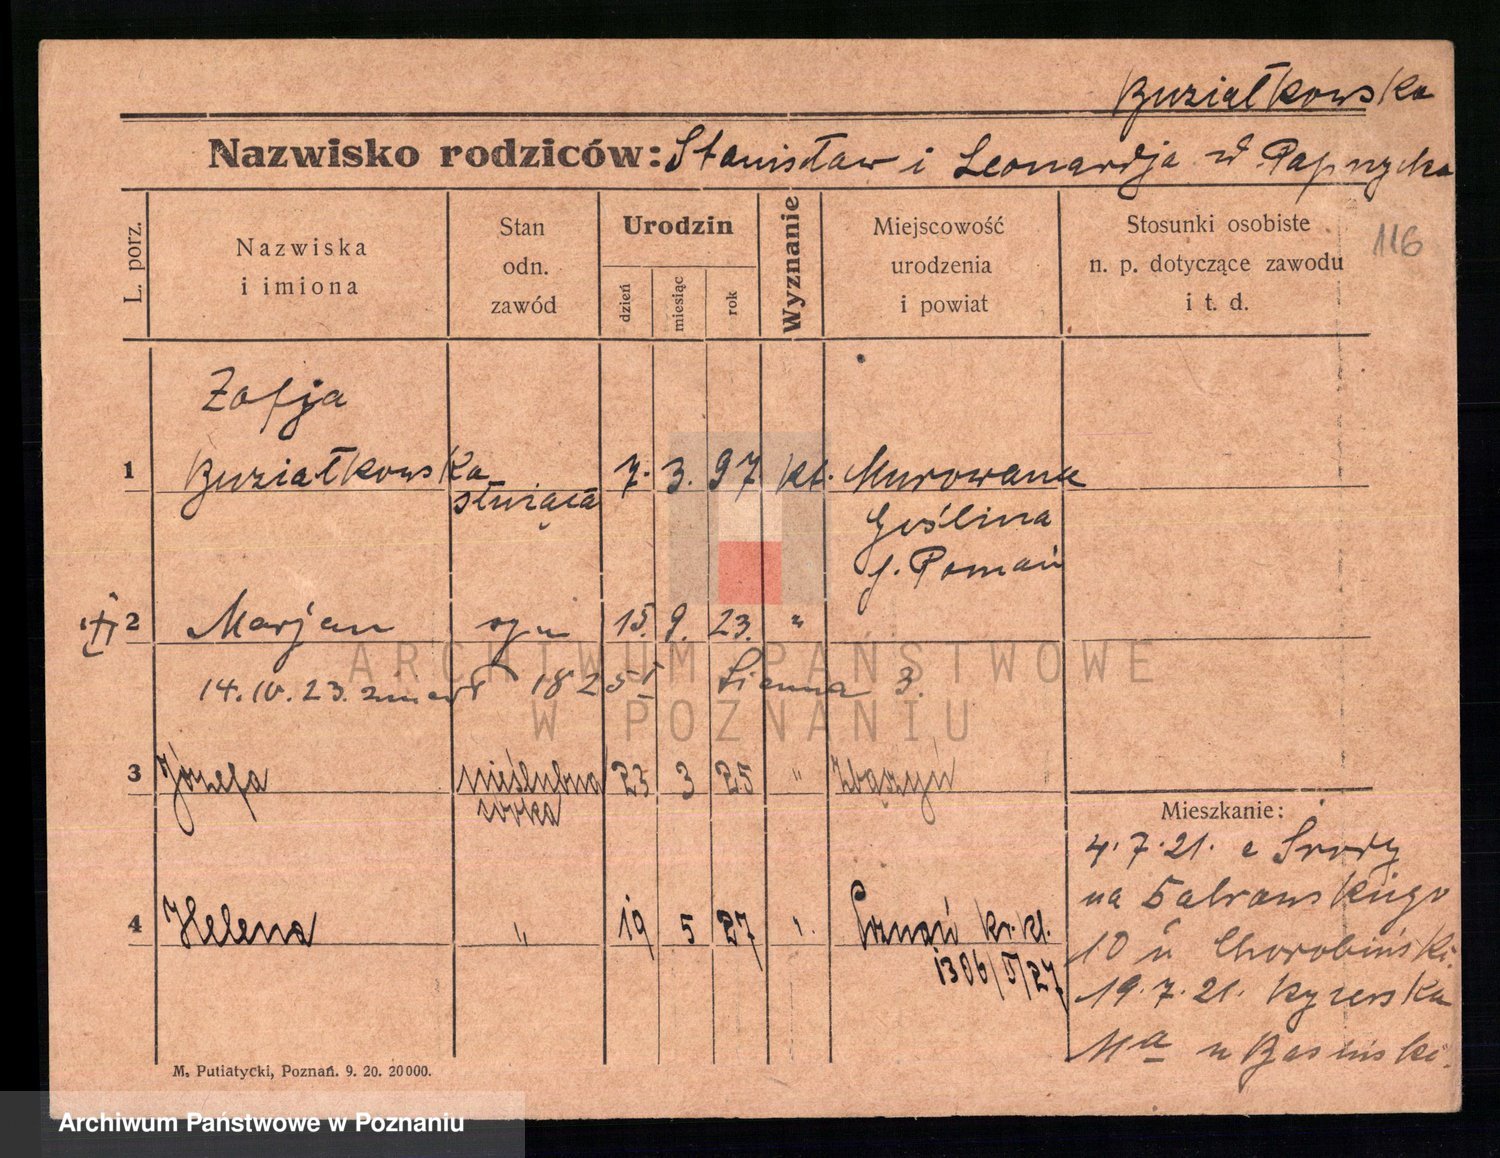 Buziałkowska
Nazwisko rodziców: Stanisław i Leonardja
116
L. porz.
Nazwiska
i imiona
Stan
odn.
zawód
Urodzin
dzień
miesiąc
rok
Wyznanie
Miejscowość
urodzenia
i powiat
Stosunki osobiste
n. p. dotyczące zawodu
i t. d.
Zofja
1 Buziałkowska 7. 3. 97. kt. Murowana
służąca
Goślina
p. Poznań
2 Marjan syn 15. 9. 23. "
14. IV. 23. zmarł Sienna 3.
3 Józefa nieślubna 23 3 25 " Zbąszyń
córka
Mieszkanie:
4.7.21. z Środy
na
4 Helena " 19 5 27 ". Poznań kr. kl.
1306/5/27
10 u Chorobiński.
19.7.21.
u Basiński.
M. Putiatycki, Poznań. 9. 20. 20000.
ARCHIWUM PAŃSTWOWE
W POZNANIU
Archiwum Państwowe w Poznaniu